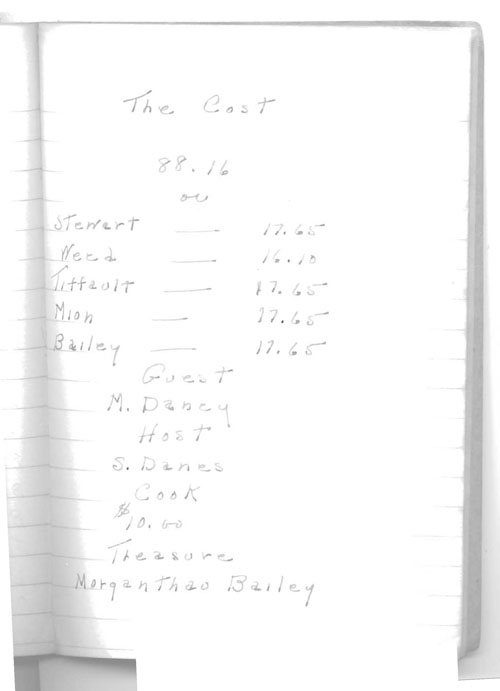 The Cost
88.16
or
Stewart — 17.65
Weed — 16.10
Tiffault — 17.65
Mion — 17.65
Bailey — 17.65
Guest
M. Dancy
Host
S. Danes
Cook
$10.00
Treasure
Morganthao Bailey